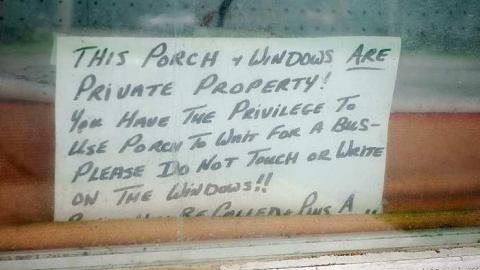 THIS PORCH + WINDOWS ARE
PRIVATE PROPERTY!
YOU HAVE THE PRIVILEGE TO
USE PORCH TO WAIT FOR A BUS-
PLEASE DO NOT TOUCH OR WRITE
ON THE WINDOWS!!
BE CALLED + PLUS A